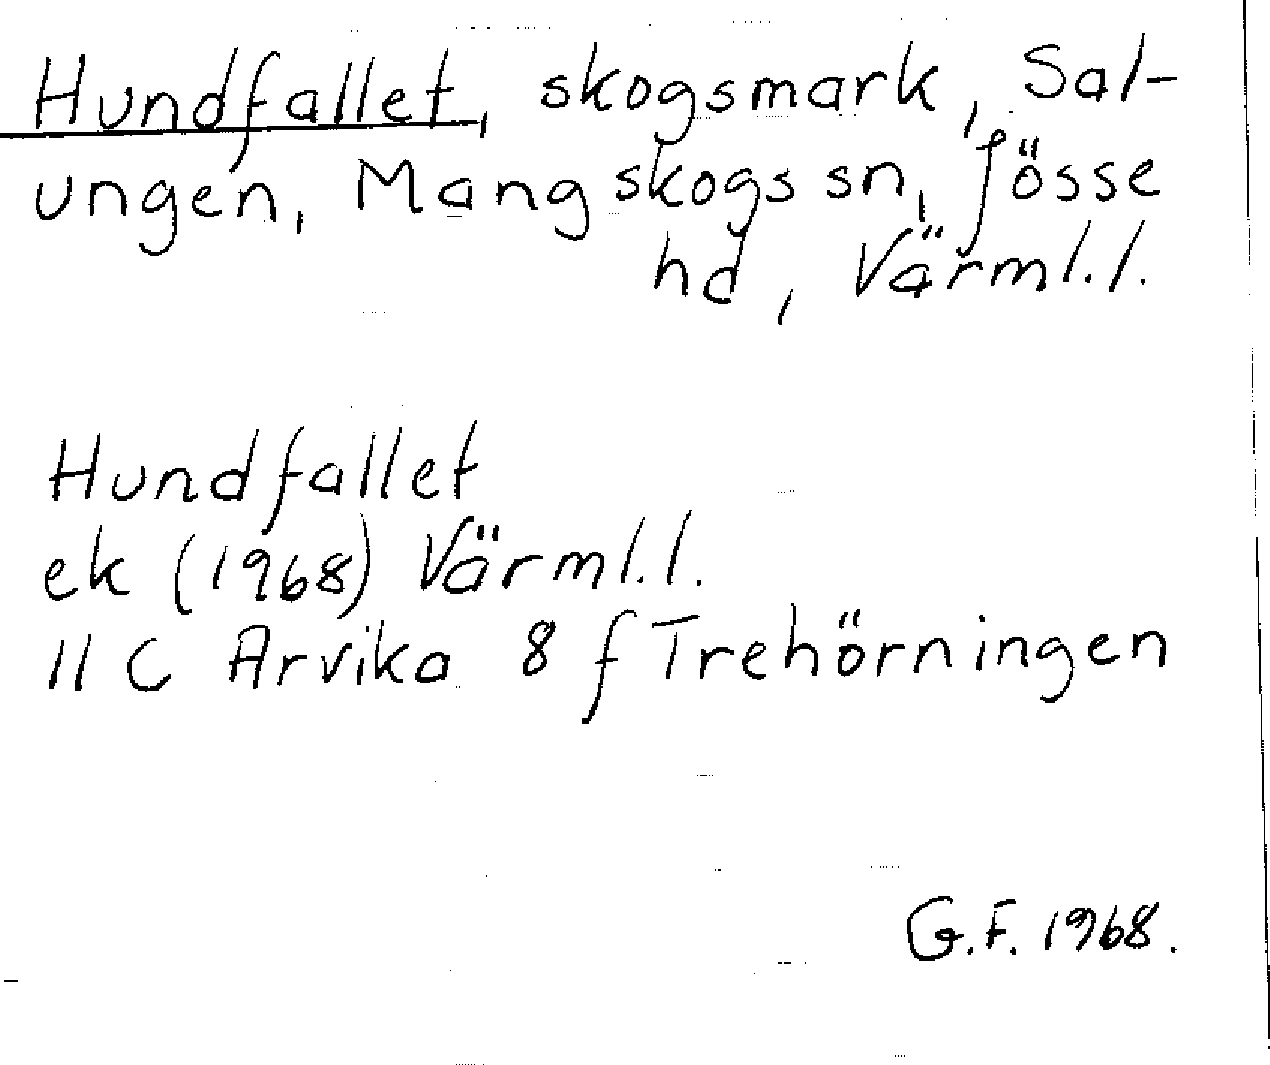 Hundfallet, skogsmark, Sal-
ungen, Mangskogs sn, Jösse
hd, Värml.l.
Hundfallet
ek (1968) Värml.l.
11 C Arvika 8 f Trehörningen
G.F. 1968.